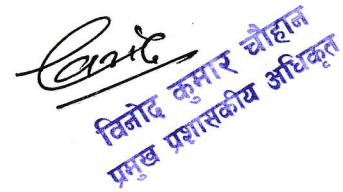 विनोद कुमार चौहान
प्रमुख प्रशासकीय अधिकृत